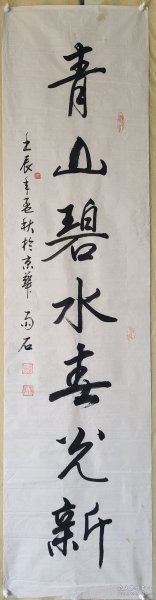 青山碧水春光新
壬辰年夏秋於京華 雨石